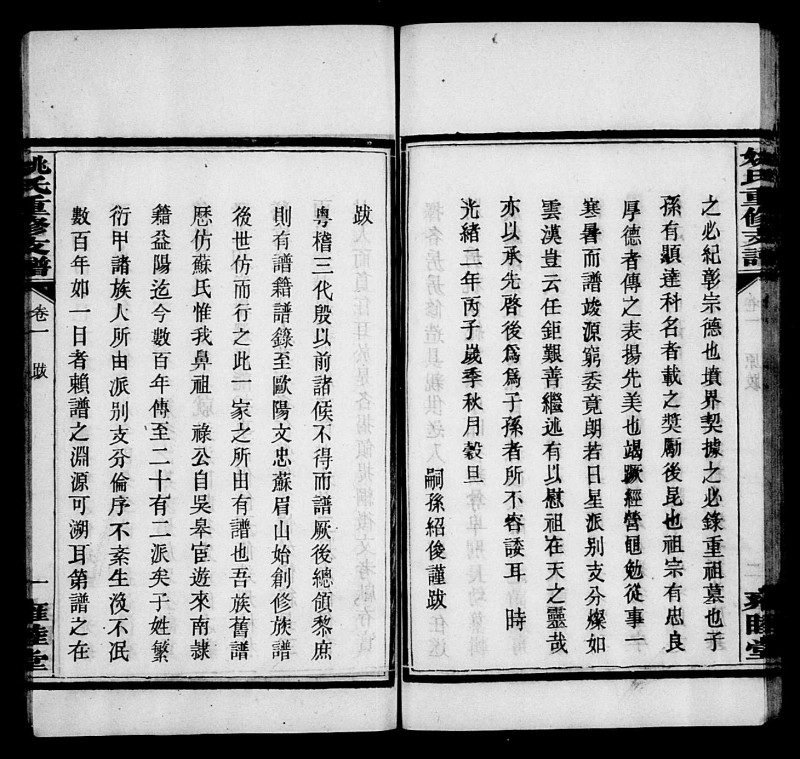 之必紀彰宗德也墳界契據之必錄重祖墓也子
孫有顯達科名者載之奬勵後昆也祖宗有忠良
厚德者傳之表揚先美也竭蹶經營黽勉從事一
寒暑而譜竣源窮委竟朗若日星派别支分燦如
雲漢豈云任鉅艱善繼述有以慰祖在天之靈哉
亦以承先啓後爲爲子孫者所不容諉耳　時
光緒二年丙子歲季秋月穀旦
嗣孫紹俊謹跋
姚氏重修支譜
卷一
跋
一
雍睦堂
跋
粵稽三代殷以前諸候不得而譜厥後總領黎庶
則有譜籍譜錄至歐陽文忠蘇眉山始創修族譜
後世仿而行之此一家之所由有譜也吾族舊譜
歷仿蘇氏惟我鼻祖　祿公自吳皋宦遊來南隷
籍益陽迄今數百年傳至二十有二派矣子姓繁
衍甲諸族人所由派别支分倫序不紊生沒不泯
數百年如一日者賴譜之淵源可溯耳第譜之在